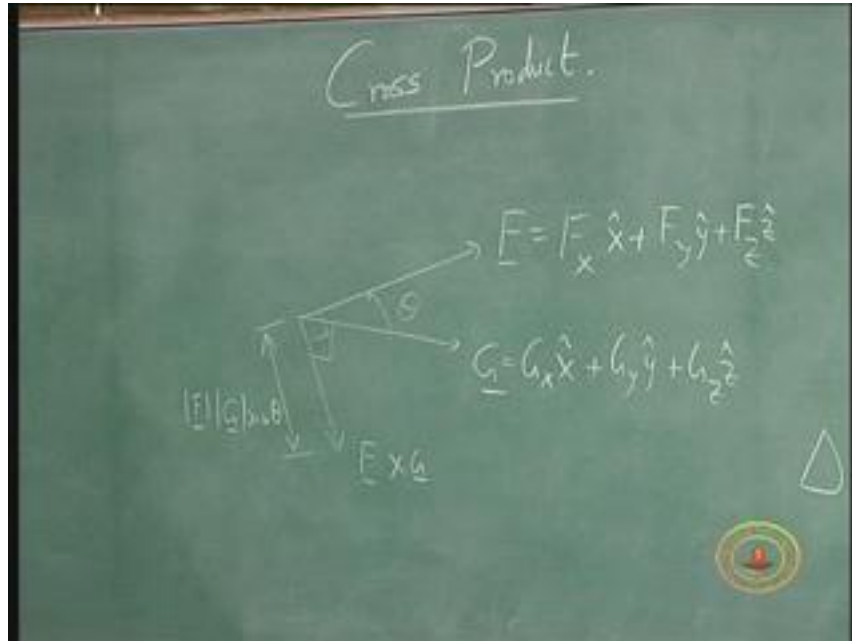 Cross Product.
F = F_x x̂ + F_y ŷ + F_z ẑ
θ
G = G_x x̂ + G_y ŷ + G_z ẑ
|F| |G| sin θ
F × G